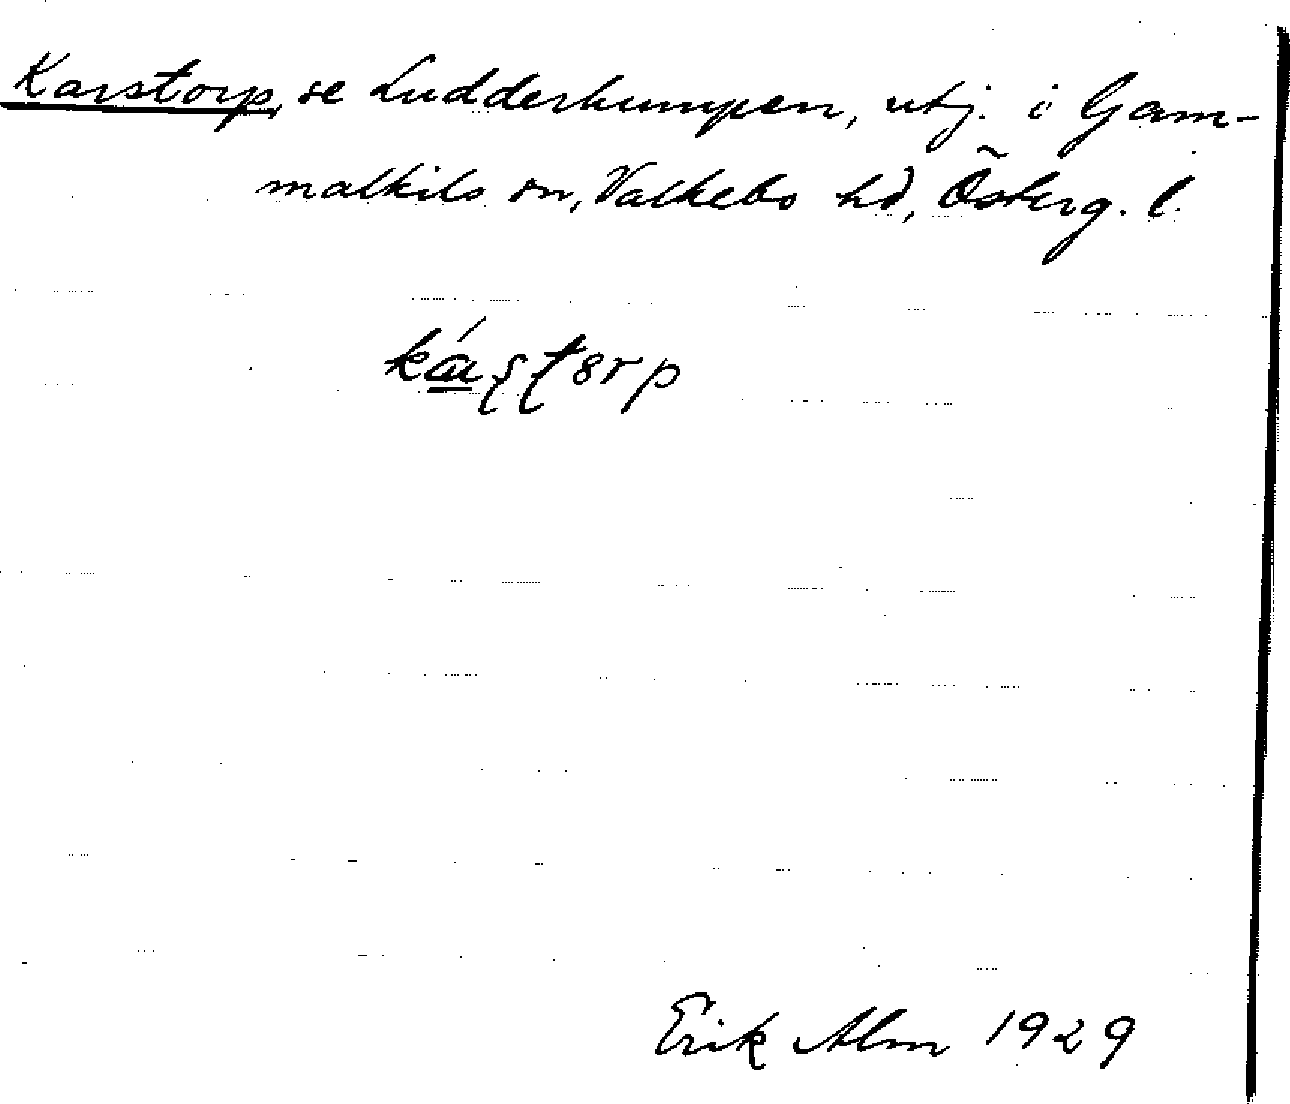 Karstorp, se Ludderkumpen, utj. i Gam-
malkils sn, Valkebo hd, Österg. l.
ká̱ʂʈɘrp
Erik Alm 1929